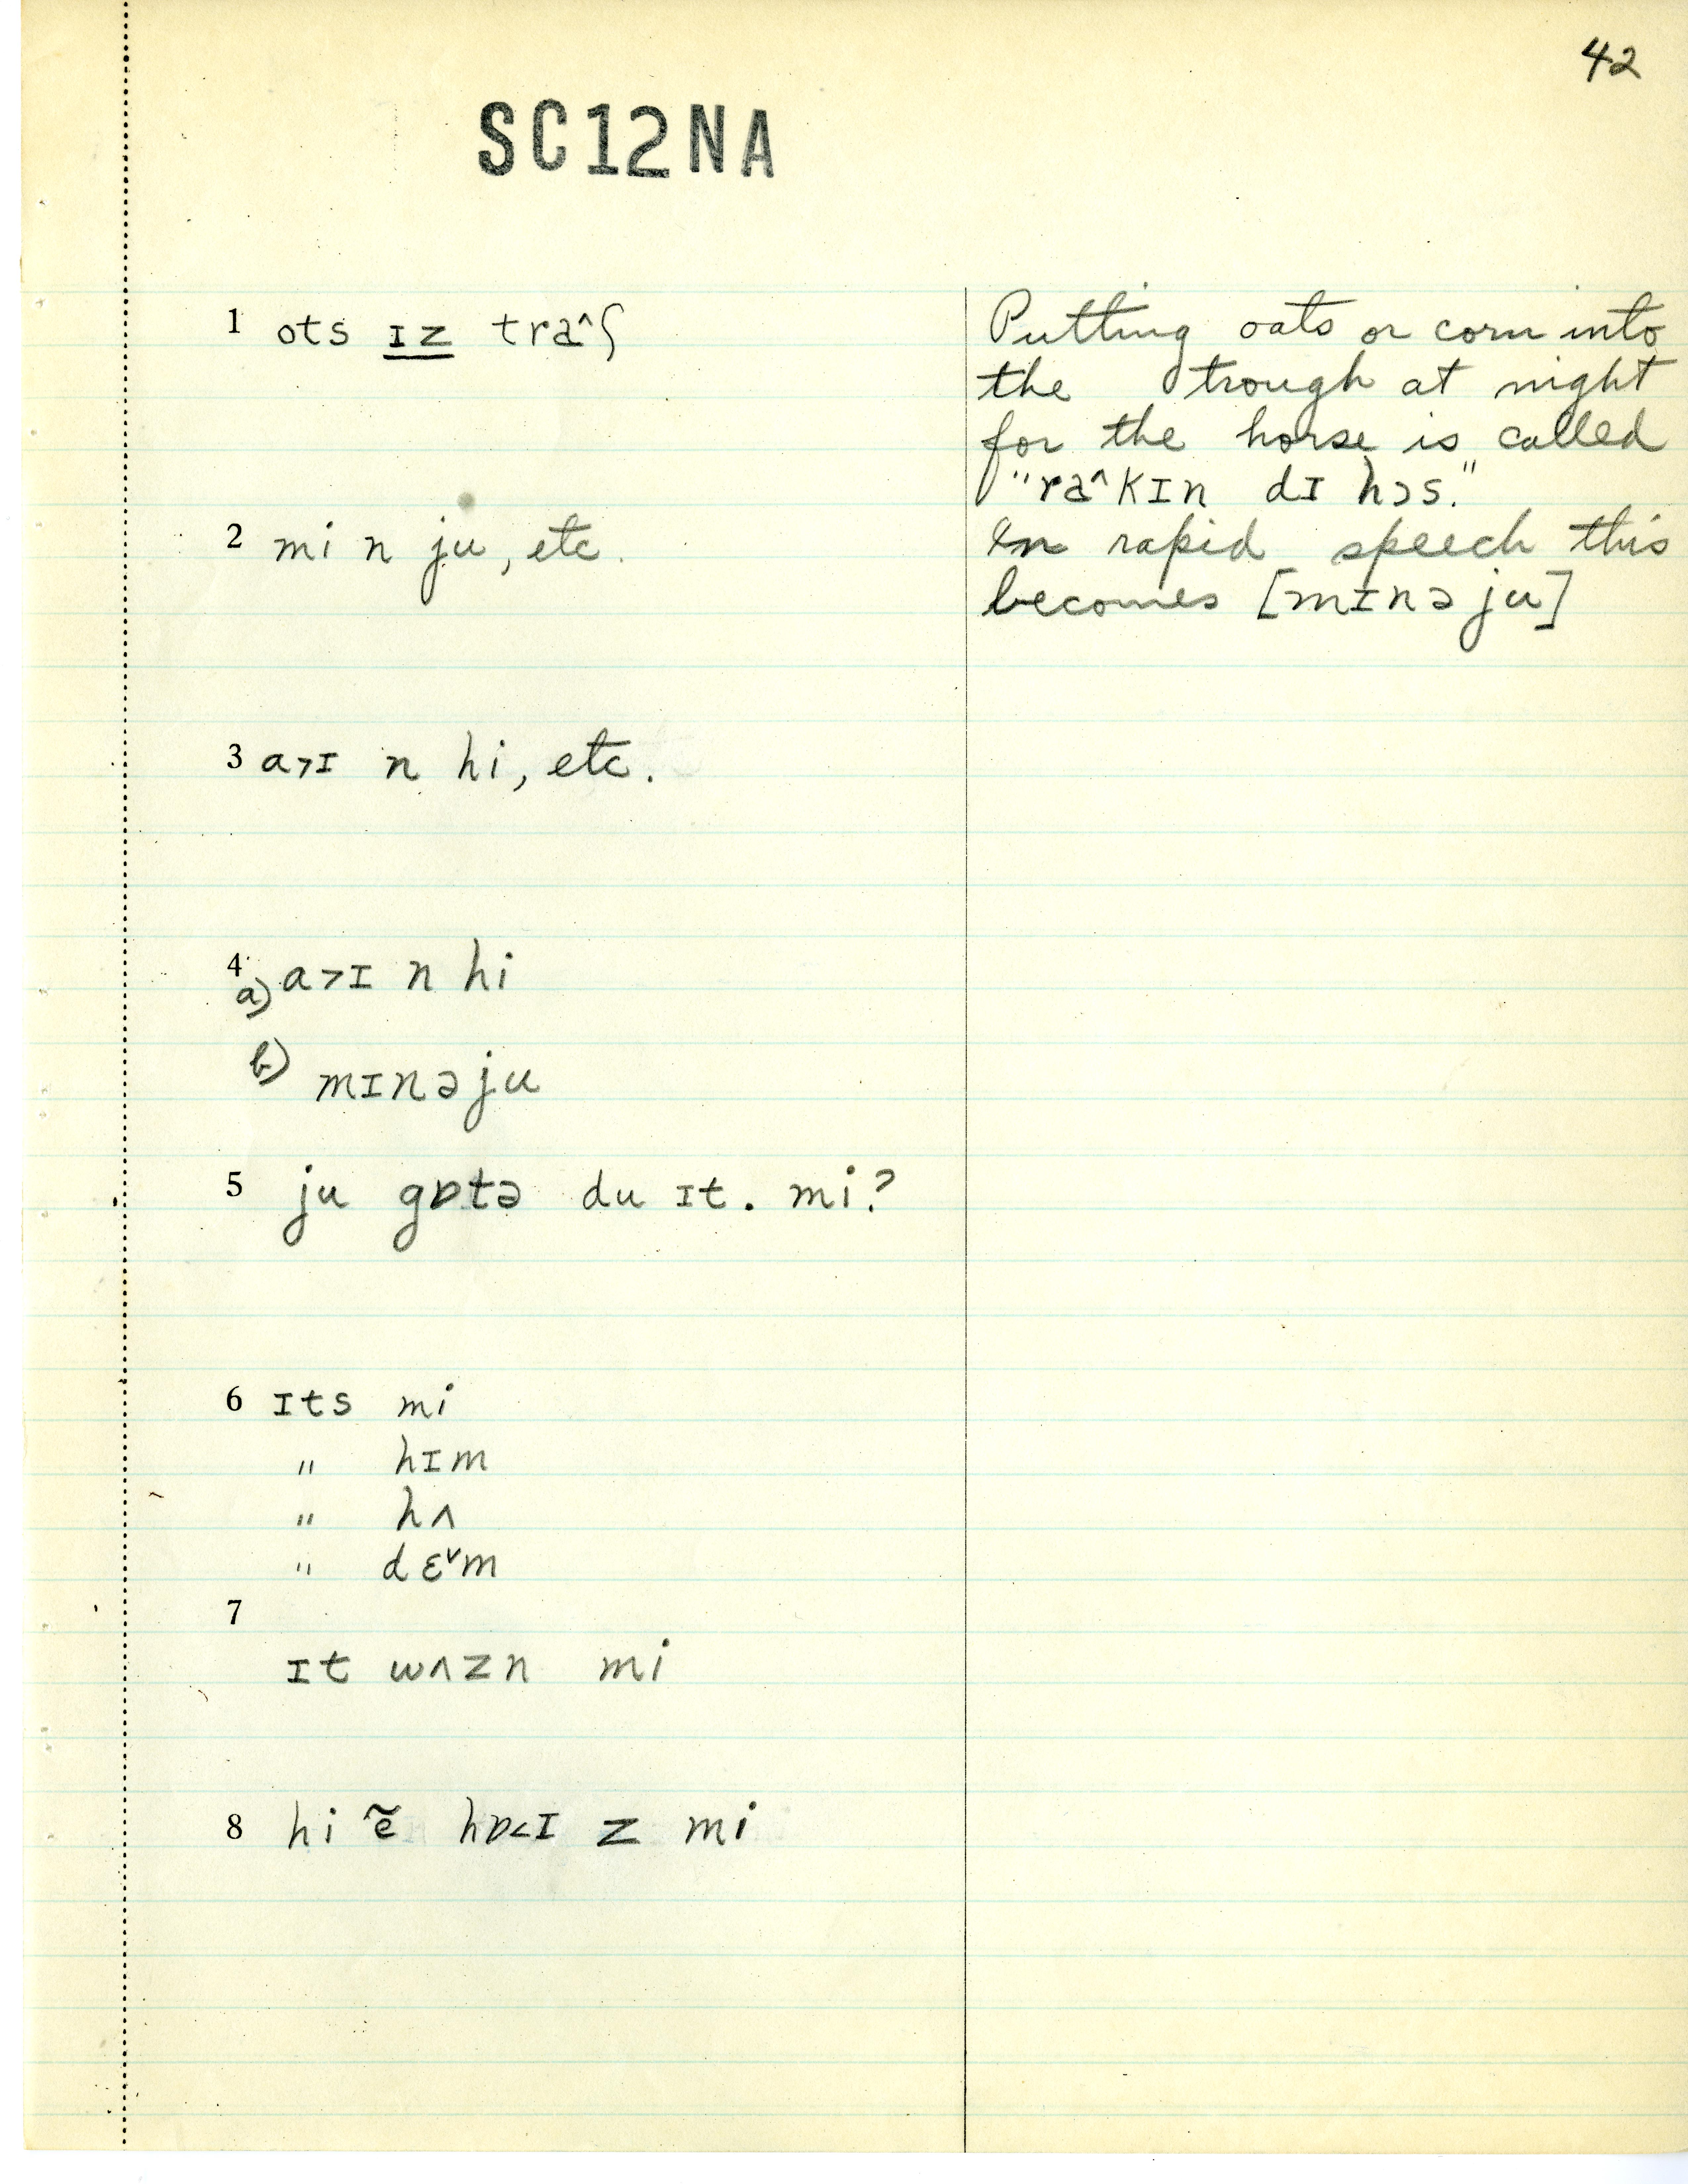 42
SC12NA
1 ots ɪz traˆʃ
Putting oats or corn into
the trough at night
for the horse is called
"raˆkɪn dɪ hɔs."
2 mi n ju, etc.
In rapid speech this
becomes [mɪnəju]
3 a>ɪ n hi, etc.
4 a) a>ɪ n hi
b) mɪnəju
5 ju gɒtə du ɪt. mi?
6 ɪts mi
" hɪm
" hʌ
" dɛˇm
7
ɪt wʌzn mi
8 hi ẽ hɒ<ɪ z mi